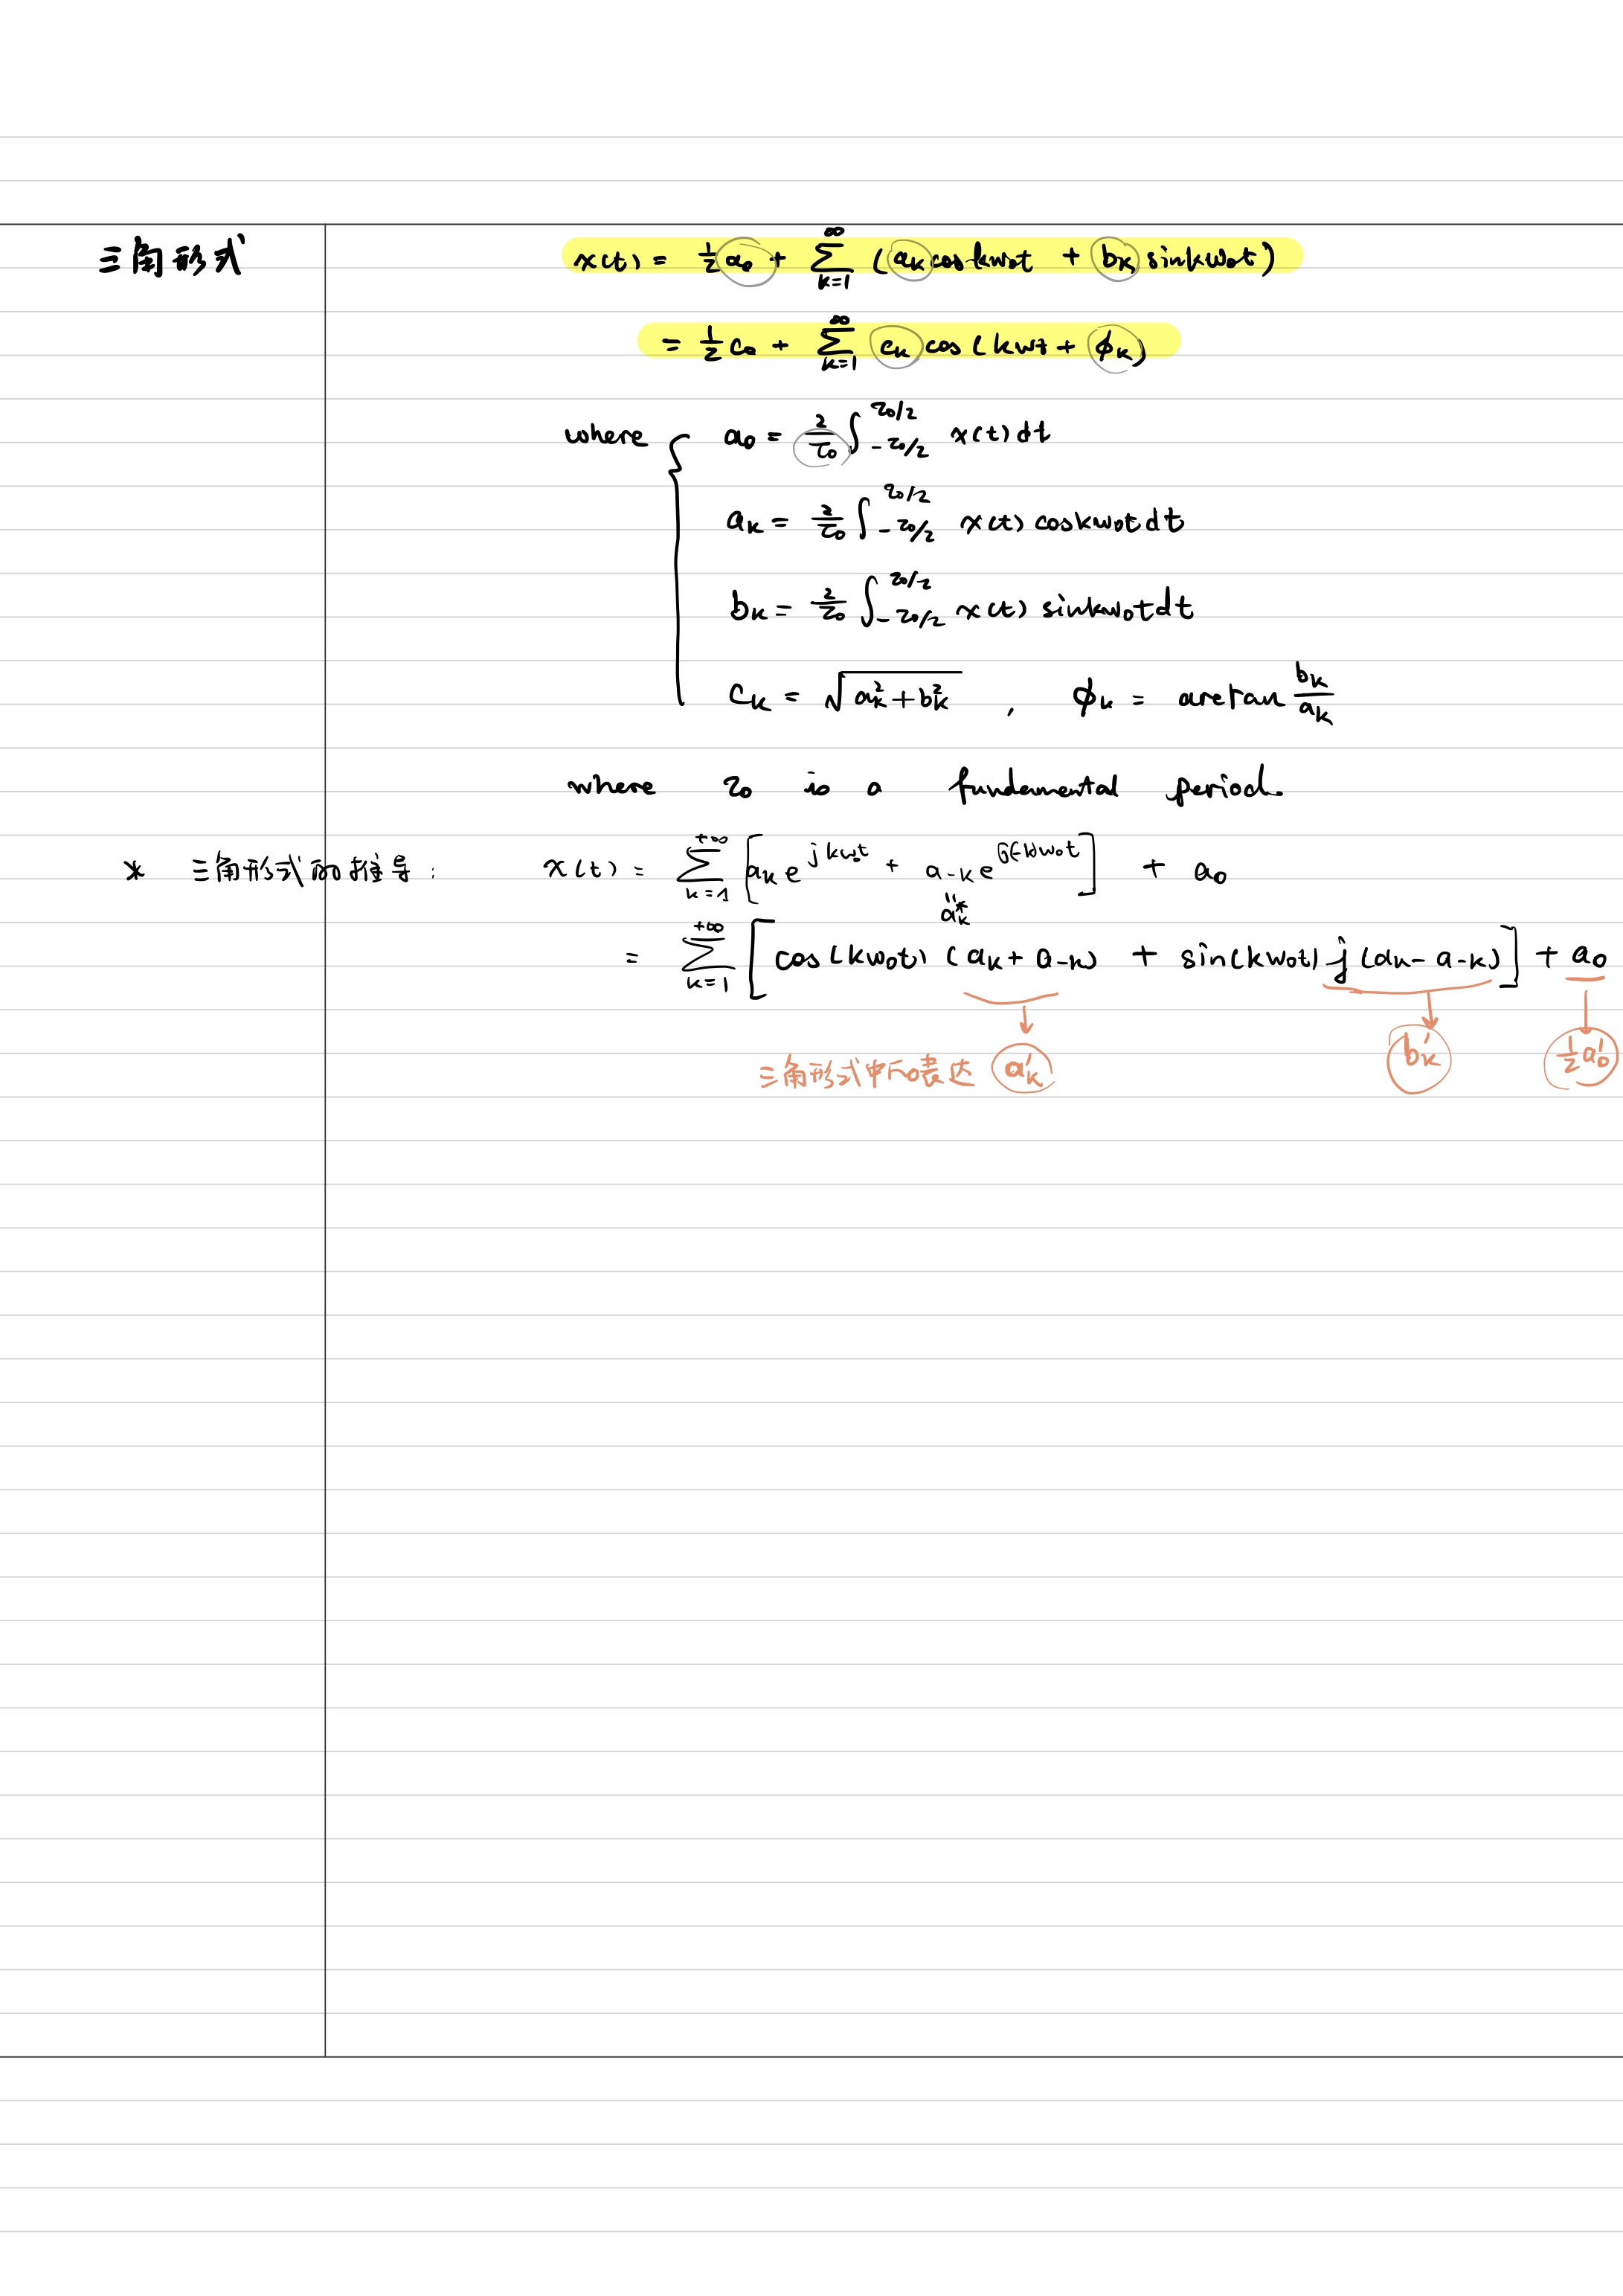 三角形式
x(t) = 1/2 a₀ + ∑_{k=1}^{∞} (aₖ cos kω₀t + bₖ sin kω₀t)
= 1/2 c₀ + ∑_{k=1}^{∞} cₖ cos (kωt + ϕₖ)
where { a₀ = 2/τ₀ ∫_{-τ₀/2}^{τ₀/2} x(t) dt
aₖ = 2/τ₀ ∫_{-τ₀/2}^{τ₀/2} x(t) cos kω₀t dt
bₖ = 2/τ₀ ∫_{-τ₀/2}^{τ₀/2} x(t) sin kω₀t dt
cₖ = √(aₖ² + bₖ²) , ϕₖ = arctan bₖ/aₖ
where τ₀ is a fundamental period.
* 三角形式的推导: x(t) = ∑_{k=1}^{+∞} [aₖ e^{jkω₀t} + a₋ₖ e^{j(-k)ω₀t}] + a₀
" aₖ*
= ∑_{k=1}^{+∞} [cos(kω₀t) (aₖ + a₋ₖ) + sin(kω₀t) j (aₖ - a₋ₖ)] + a₀
三角形式中的表达 a'ₖ b'ₖ 1/2 a'₀